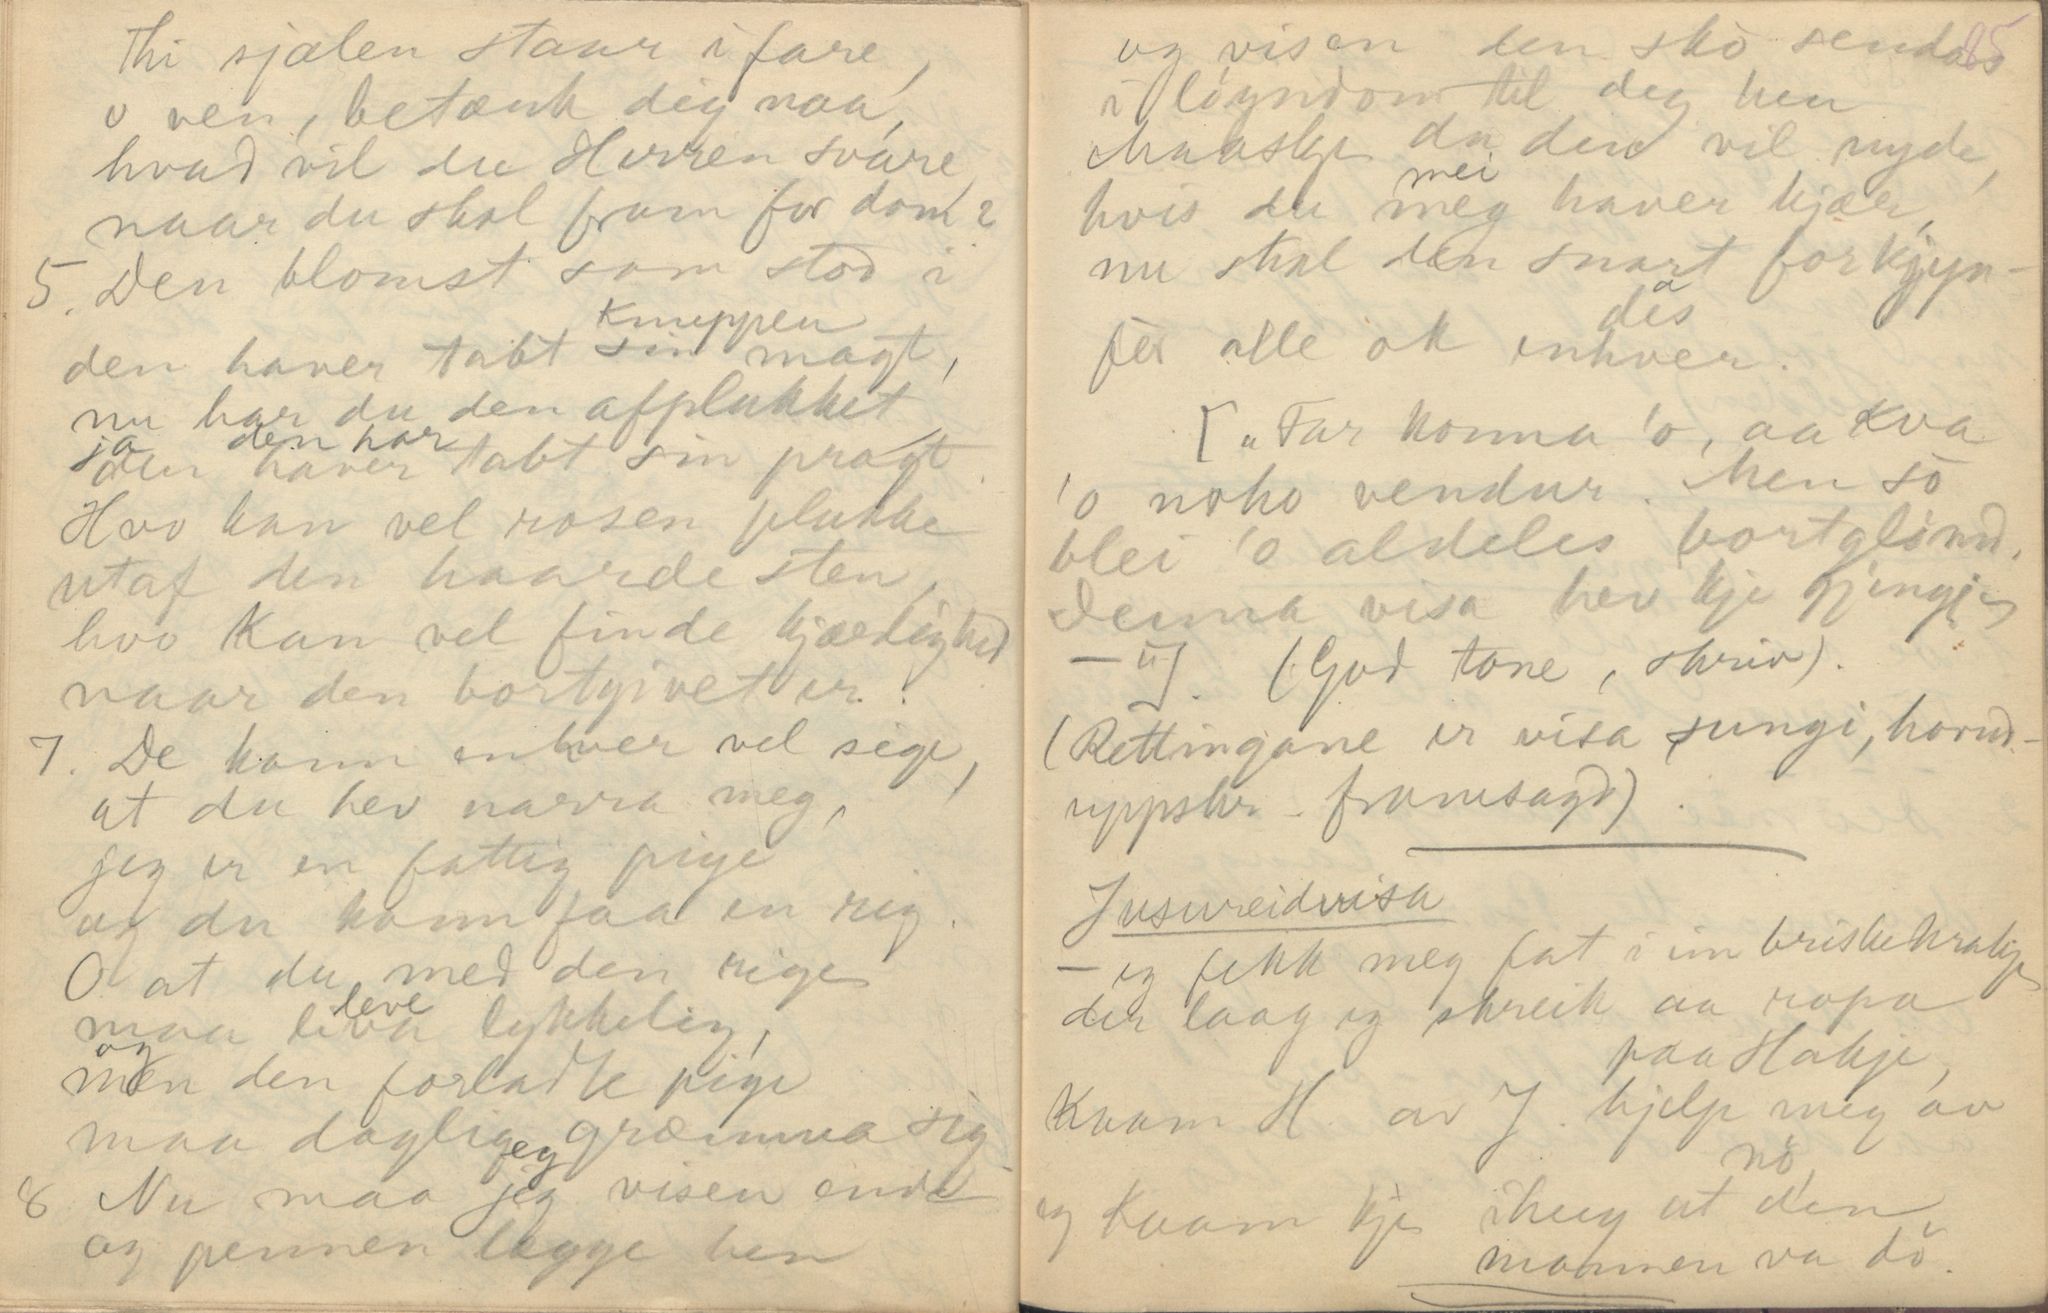 Thi sjælen staar i fare,
o ven, betænk dig naa,
hvad vil du Herren svare,
naar du skal fram for dom?
5. Den blomst som stod i
knuppen
den haver tabt sin magt,
nu har du den afplukket
ja den har
den haver tabt sin pragt.
Hvo kan vel rosen plukke
utaf den haarde sten,
hvo kan vel finde kjærlighed
naar den bortgivet er.
7. De kann enhver vel sige,
at du hev narra meg,
jeg er en fattig pige
og du kann faa en rig.
O at du med den rige
leve
maa leva lykkelig,
og
men den forladte pige
maa daglig græmma sig.
jeg
8 Nu maa jig visen ende
og pennen lægge hen
85
og visen den sko sendas
i løyndom til deg hen
Maaskje du den vil nyde,
mei
hvis du meg haver kjær,
nu skal den snart forkjyn-
des
før alle ok enhver.
[„Far konna 'o, aa kva
'o noko vendur. Men so
blei 'o aldeles bortglömd.
Denna visa hev kje gjengje
— "]. (God tone, skriv).
(Rettingane er visa sungi, hovud-
uppskr. framsagd).
Jusureidvisa
— eg fekk meg fat i ein briskekrakje
der laag eg skreik aa ropa
paa Hakje,
Kvam H. av J. hjelp meg av
nö,
eg kvam kje ihug at den
mannen va dö.